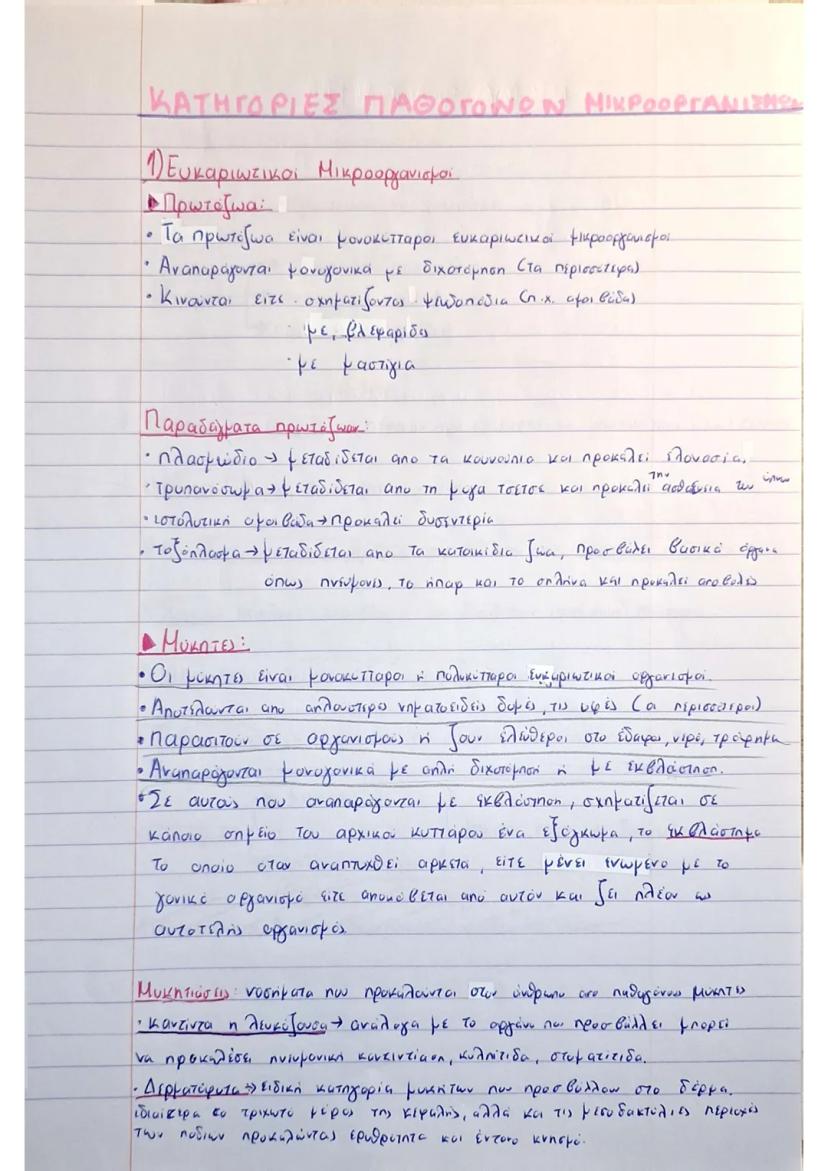 ΚΑΤΗΓΟΡΙΕΣ ΠΑΘΟΓΟΝΩΝ ΜΙΚΡΟΟΡΓΑΝΙΣΜΩΝ
1) Ευκαριωτικοί Μικροοργανισμοί
▶Πρωτόζωα:
• Τα πρωτόζωα είναι μονοκύτταροι ευκαριωτικοί μικροοργανισμοί
• Αναπαράγονται μονογονικά με διχοτόμηση (τα περισσότερα)
• Κινούνται είτε · σχηματίζοντας ψευδοπόδια (π.χ. αμοιβάδα)
· με βλεφαρίδες
· με μαστίγια
Παραδείγματα πρωτόζωων:
· πλασμώδιο → μεταδίδεται από τα κουνούπια και προκαλεί ελονοσία.
· τρυπανόσωμα → μεταδίδεται απο τη μύγα τσετσε και προκαλεί την ασθένεια του ύπνου
· ιστολυτική αμοιβάδα → προκαλεί δυσεντερία
• τοξόπλασμα → μεταδίδεται απο τα κατοικίδια ζώα, προσβάλει βασικά όργανα
όπως πνεύμονες, το ήπαρ και το σπλήνα και προκαλεί αποβολές
▶ Μύκητες:
• Οι μύκητες είναι μονοκύτταροι ή πολυκύτταροι ευκαριωτικοί οργανισμοί.
• Αποτελούνται απο απλούστερες νηματοειδείς δομές, τις υφές (οι περισσότεροι)
• Παρασιτούν σε οργανισμούς ή ζουν ελεύθεροι στο έδαφος, νερό, τρόφιμα
• Αναπαράγονται μονογονικά με απλή διχοτόμηση ή με εκβλάστηση.
• Σε αυτούς που αναπαράγονται με εκβλάστηση, σχηματίζεται σε
κάποιο σημείο του αρχικού κυττάρου ένα εξόγκωμα, το εκβλάστημα
το οποίο όταν αναπτυχθεί αρκετα, είτε μένει ενωμένο με το
γονικό οργανισμό είτε αποκόβεται από αυτόν και ζει πλέον ως
αυτοτελής οργανισμός
Μυκητιάσεις: νοσήματα που προκαλούνται στον άνθρωπο απο παθογόνους μύκητες
· καντιντα η λευκάζουσα → ανάλογα με το οργάνο που προσβάλλει μπορεί
να προκαλέσει πνευμονική καντιντίαση, κολπίτιδα, στοματίτιδα.
· Δερματόφυτα → ειδική κατηγορία μυκήτων που προσβάλλουν στο δέρμα.
ιδιαίτερα το τριχωτό μέρος της κεφαλής, αλλά και τις μεσοδακτύλιες περιοχές
των ποδιων προκαλώντας ερυθρότητα και έντονο κνησμό.